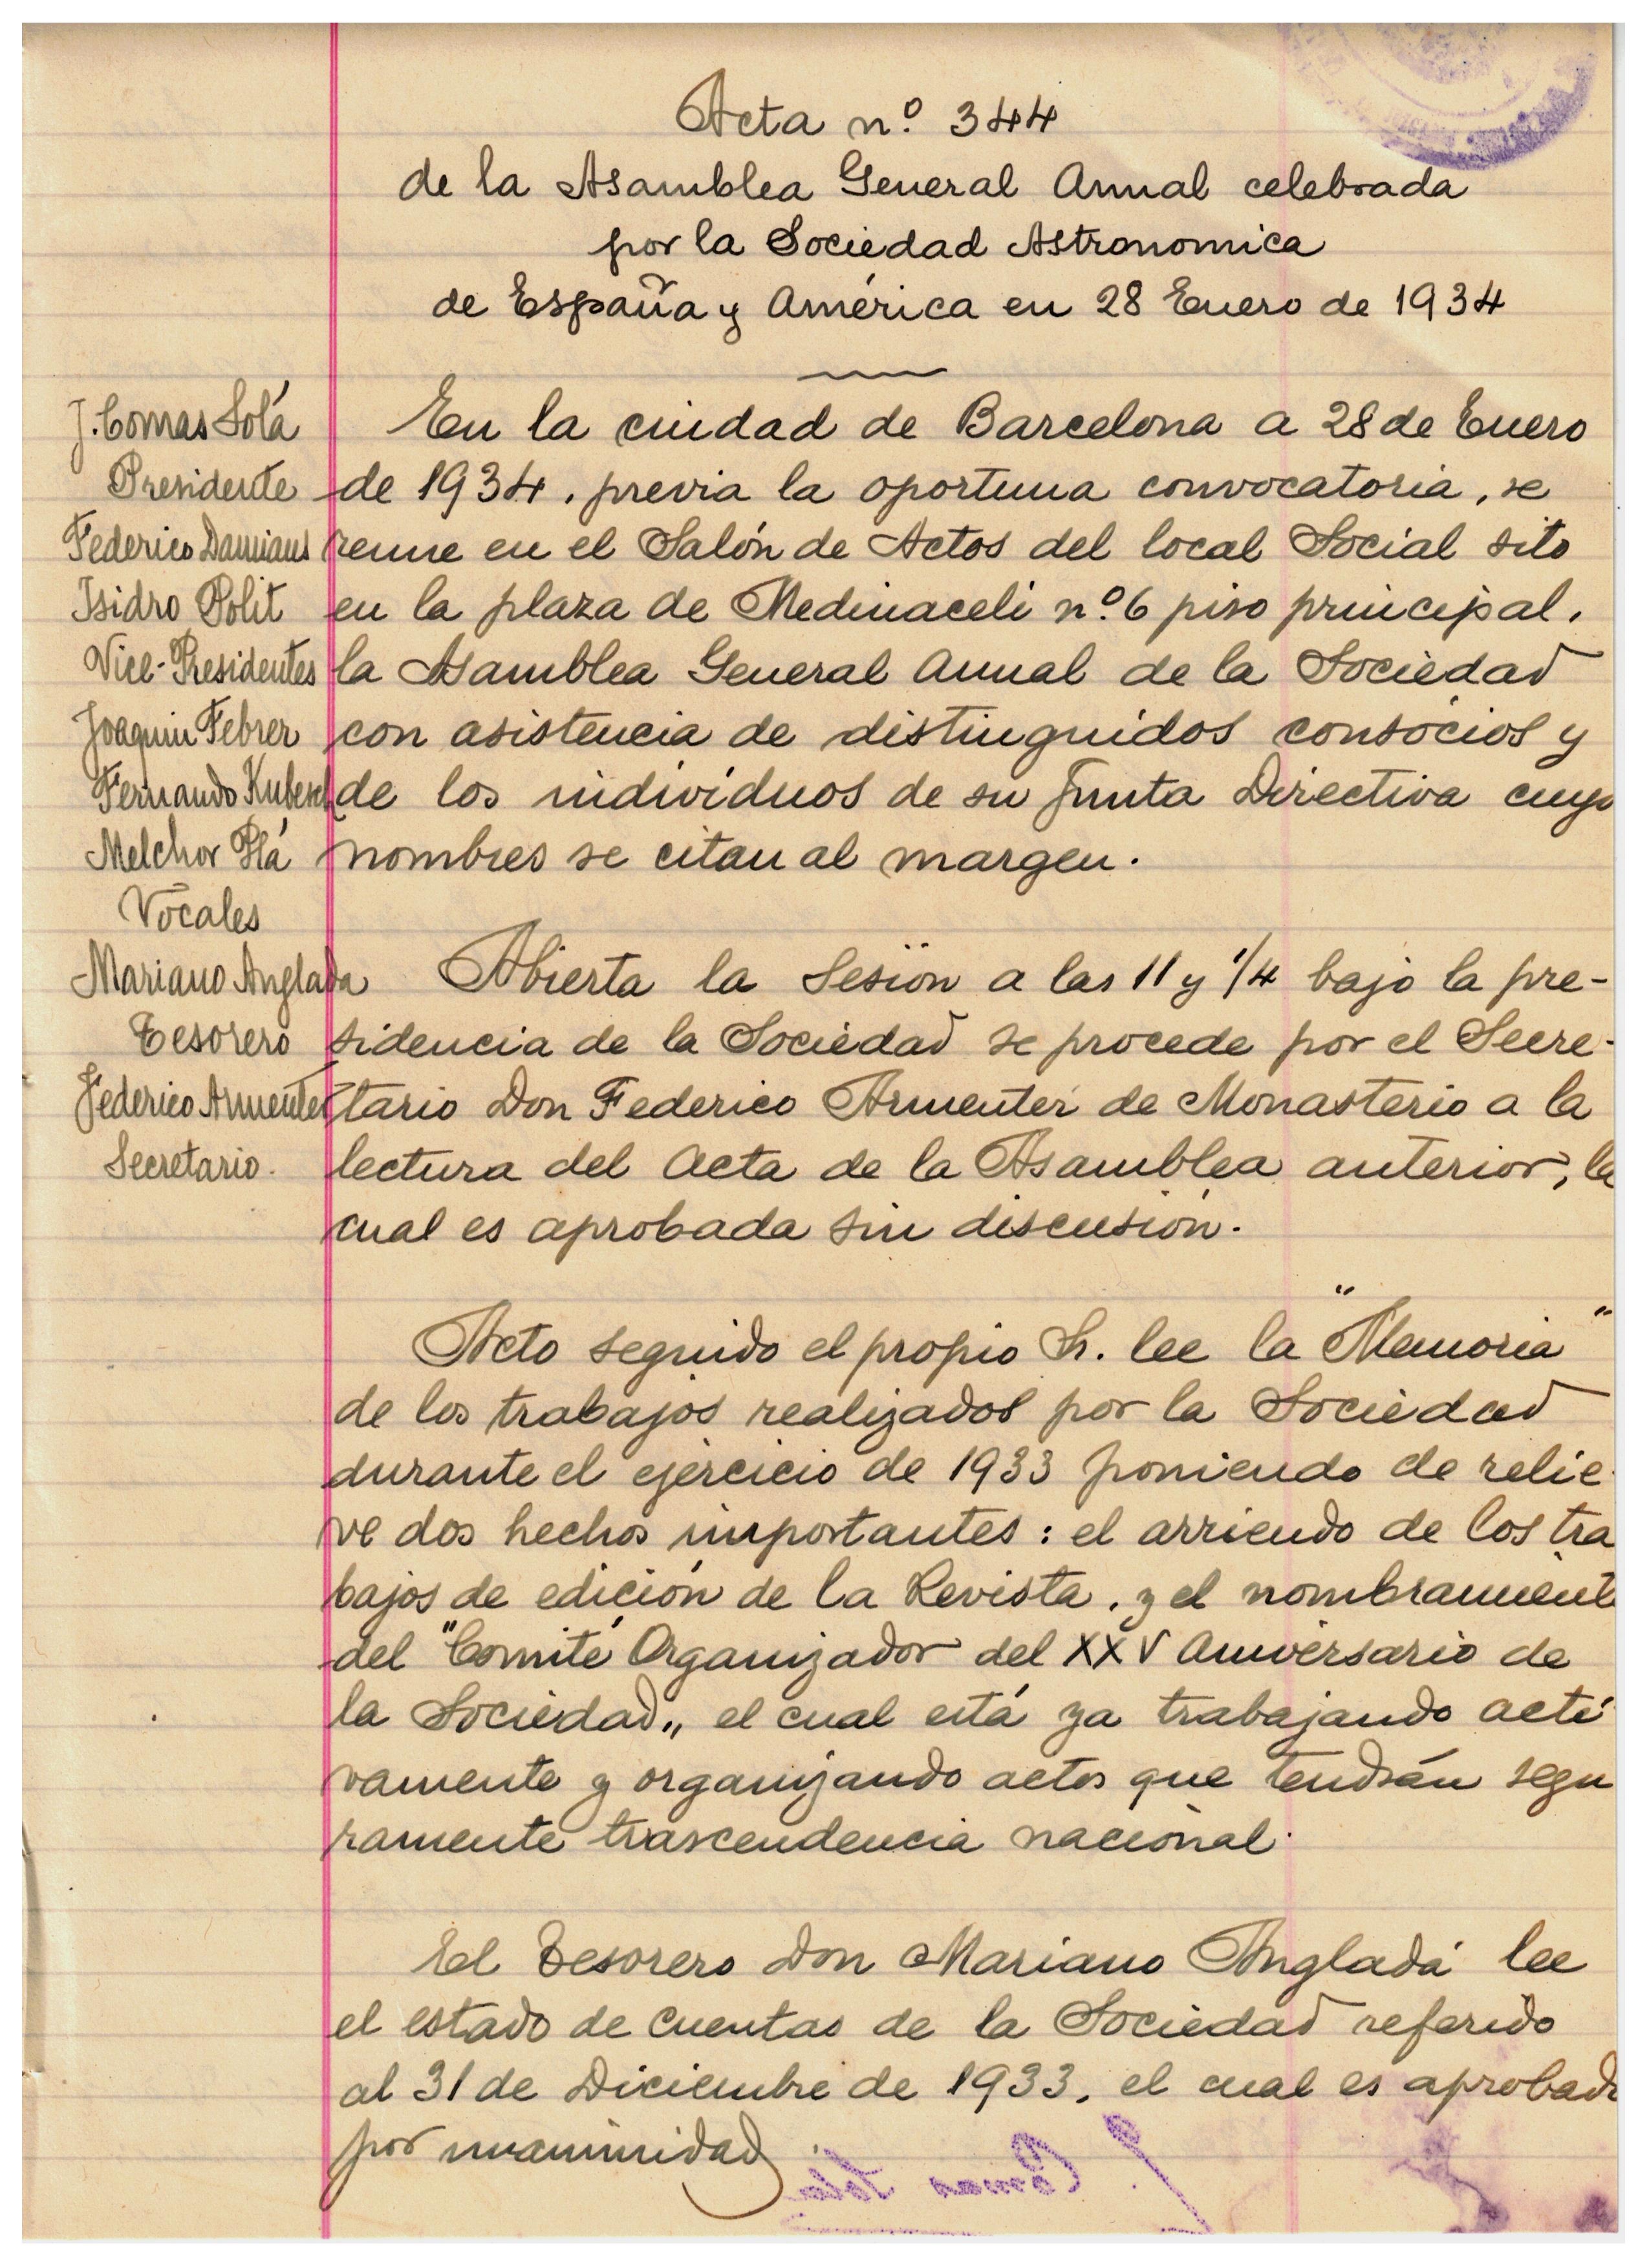 Acta n.º 344
de la Asamblea General Anual celebrada
por la Sociedad Astronomica
de España y América en 28 Enero de 1934
J. Comas Solá
Presidente
Federico Damians
Isidro Polit
Vice-Presidentes
Joaquin Febrer
Fernando
Melchor Plá
Vocales
Mariano Anglada
Tesorero
Federico Armenter
Secretario.
En la ciudad de Barcelona a 28 de Enero
de 1934, previa la oportuna convocatoria, se
reune en el Salón de Actos del local Social sito
en la plaza de Medinaceli n.º 6 piso principal,
la Asamblea General Anual de la Sociedad
con asistencia de distinguidos consocios y
de los individuos de su Junta Directiva cuyo
nombres se citan al margen.
Abierta la Sesión a las 11 y 1/4 bajo la pre-
sidencia de la Sociedad se procede por el Secre-
tario Don Federico Armenter de Monasterio a la
lectura del Acta de la Asamblea anterior, la
cual es aprobada sin discusión.
Acto seguido el propio Sr. lee la "Memoria"
de los trabajos realizados por la Sociedad
durante el ejercicio de 1933 poniendo de relie-
ve dos hechos importantes: el arriendo de los tra
bajos de edición de la Revista, y el nombramient
del "Comité Organizador del XXV Aniversario de
la Sociedad„ el cual está ya trabajando acti
vamente y organizando actos que tendrán segu
ramente trascendencia nacional.
El Tesorero Don Mariano Angladá lee
el estado de cuentas de la Sociedad referido
al 31 de Diciembre de 1933, el cual es aprobado
por unanimidad.
J. Comas Solá